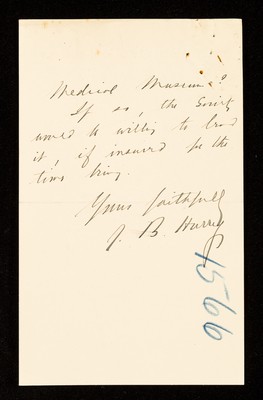 Medical Museum?
If so, the Society
would be willing to lend
it, if insured for the
time being.
Yours faithfully
J. B. Hurry
1566